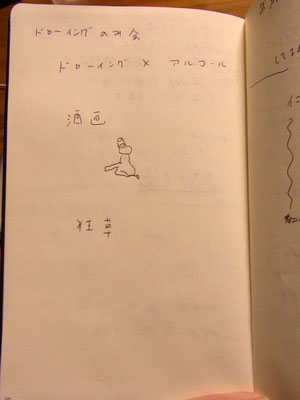 ドローイングの
ドローイング × アルコール
酒画
狂草